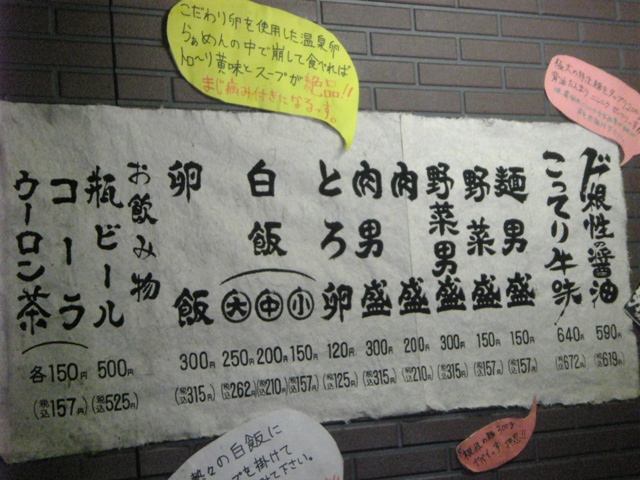 こだわり卵を使用した温泉卵
らぁめんの中で崩して食べれば
トロ～リ黄味とスープが絶品!!
まじ病み付きになるっす。
ド根性の醤油 590円 (税込619円)
こってり牛味! 640円 (税込672円)
麺男盛 150円 (税込157円)
野菜盛 150円 (税込157円)
野菜男盛 300円 (税込315円)
肉盛 200円 (税込210円)
肉男盛 300円 (税込315円)
とろ卵 120円 (税込125円)
白飯
小 150円 (税込157円)
中 200円 (税込210円)
大 250円 (税込262円)
卵飯 300円 (税込315円)
お飲み物
瓶ビール 500円 (税込525円)
コーラ
ウーロン茶
各150円 (税込157円)
の白飯に
プを掛けて
て下さい。